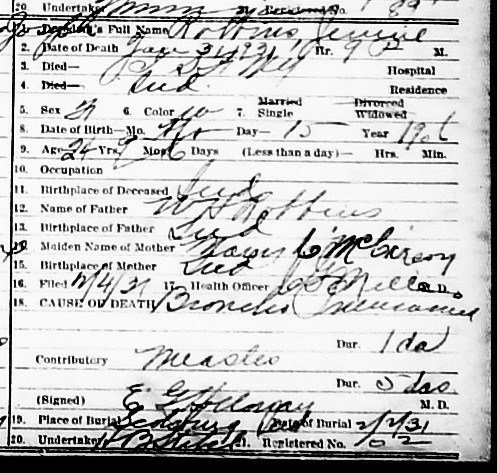 20. Undertaker 21. Registered No. 89
Decedent's Full Name Robbins, Jennie
2. Date of Death Jan 31 1931 Hr. 9 P M.
3. Died— Hospital
4. Died— Ind. Residence
5. Sex F 6. Color W 7. Married Single Divorced Widowed
8. Date of Birth—Mo. Day— 15 Year 1906
9. Age 24 Yrs. 9 Mos. 6 Days (Less than a day)— Hrs. Min.
10. Occupation
11. Birthplace of Deceased Ind
12. Name of Father W H Robbins
13. Birthplace of Father Ind
Maiden Name of Mother Mary C. McCrory
15. Birthplace of Mother Ind
16. Filed 2/4/31 17. Health Officer Miller M. D.
18. CAUSE OF DEATH Broncho Pneumonia
Dur. 1 da
Contributory Measles
Dur. 5 das
(Signed) E. G. Holloway M. D.
19. Place of Burial Date of Burial 2/2/31
20. Undertaker 21. Registered No.